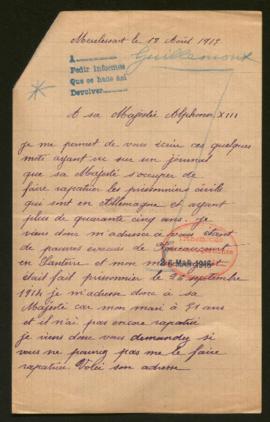 Merelessart le 18 Août 1915
Guillemoux
A
Pedir informes
Que se hace aní
Devolver
A sa Majesté Alphonse XIII
je me permet de vous écrire ces quelques
mots ayant vu sur un journeau
que sa Majesté s'occuper de
faire rapatrier les prisonniers civils
qui sont en Allemagne et ayant
plus de quarante cinq ans. je
viens donc m'adresser à vous étant
de pauvres évacués de
en Santerre et mon mari ayant
était fait prisonnier le 26 septembre
1914 je m'adresse donc à sa
Majesté car mon mari à 51 ans
et il n'ai pas encore rapatrié
je viens donc vous demander si
vous ne pourrez pas me le faire
rapatrier Voici son adresse
MAR 1916